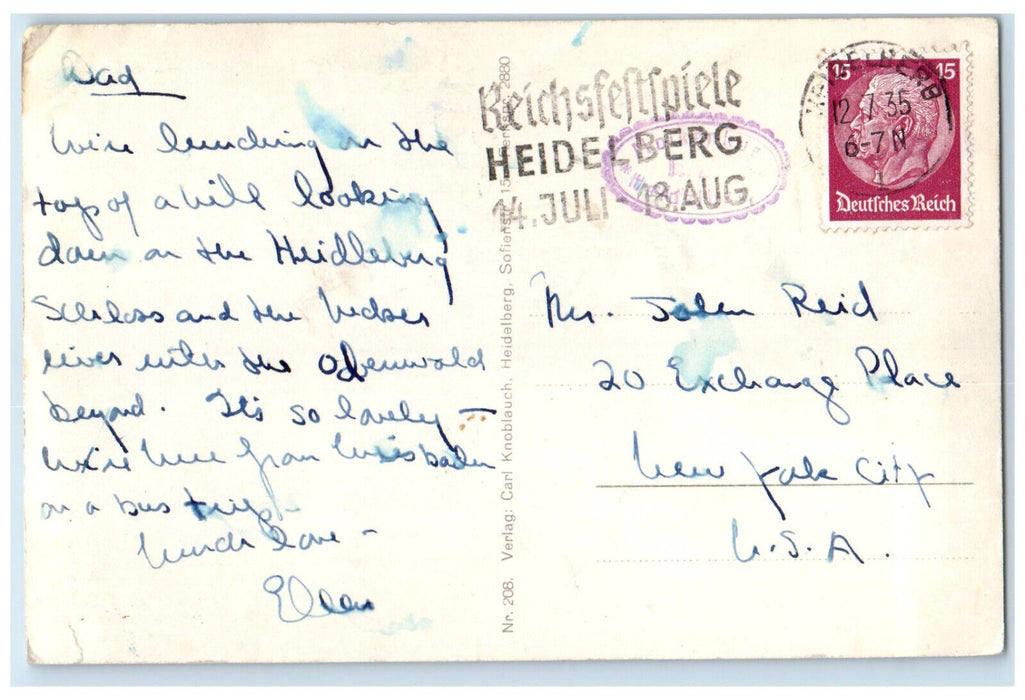 Dad
We're lunching on the
top of a hill looking
down on the Heidleberg
Schloss and the Neckar
river with the Odenwald
beyond. It's so lovely —
We're here from Wiesbaden
on a bus trip –
Much love –
Ellen
Nr. 208. Verlag: Carl Knoblauch, Heidelberg, Sofienstr. 15
Reichsfestspiele
HEIDELBERG
14. JULI - 18. AUG.
HEIDELBERG
12.7.35
6-7N
15 15
Deutsches Reich
Mr. John Reid
20 Exchange Place
New York City
U.S.A.